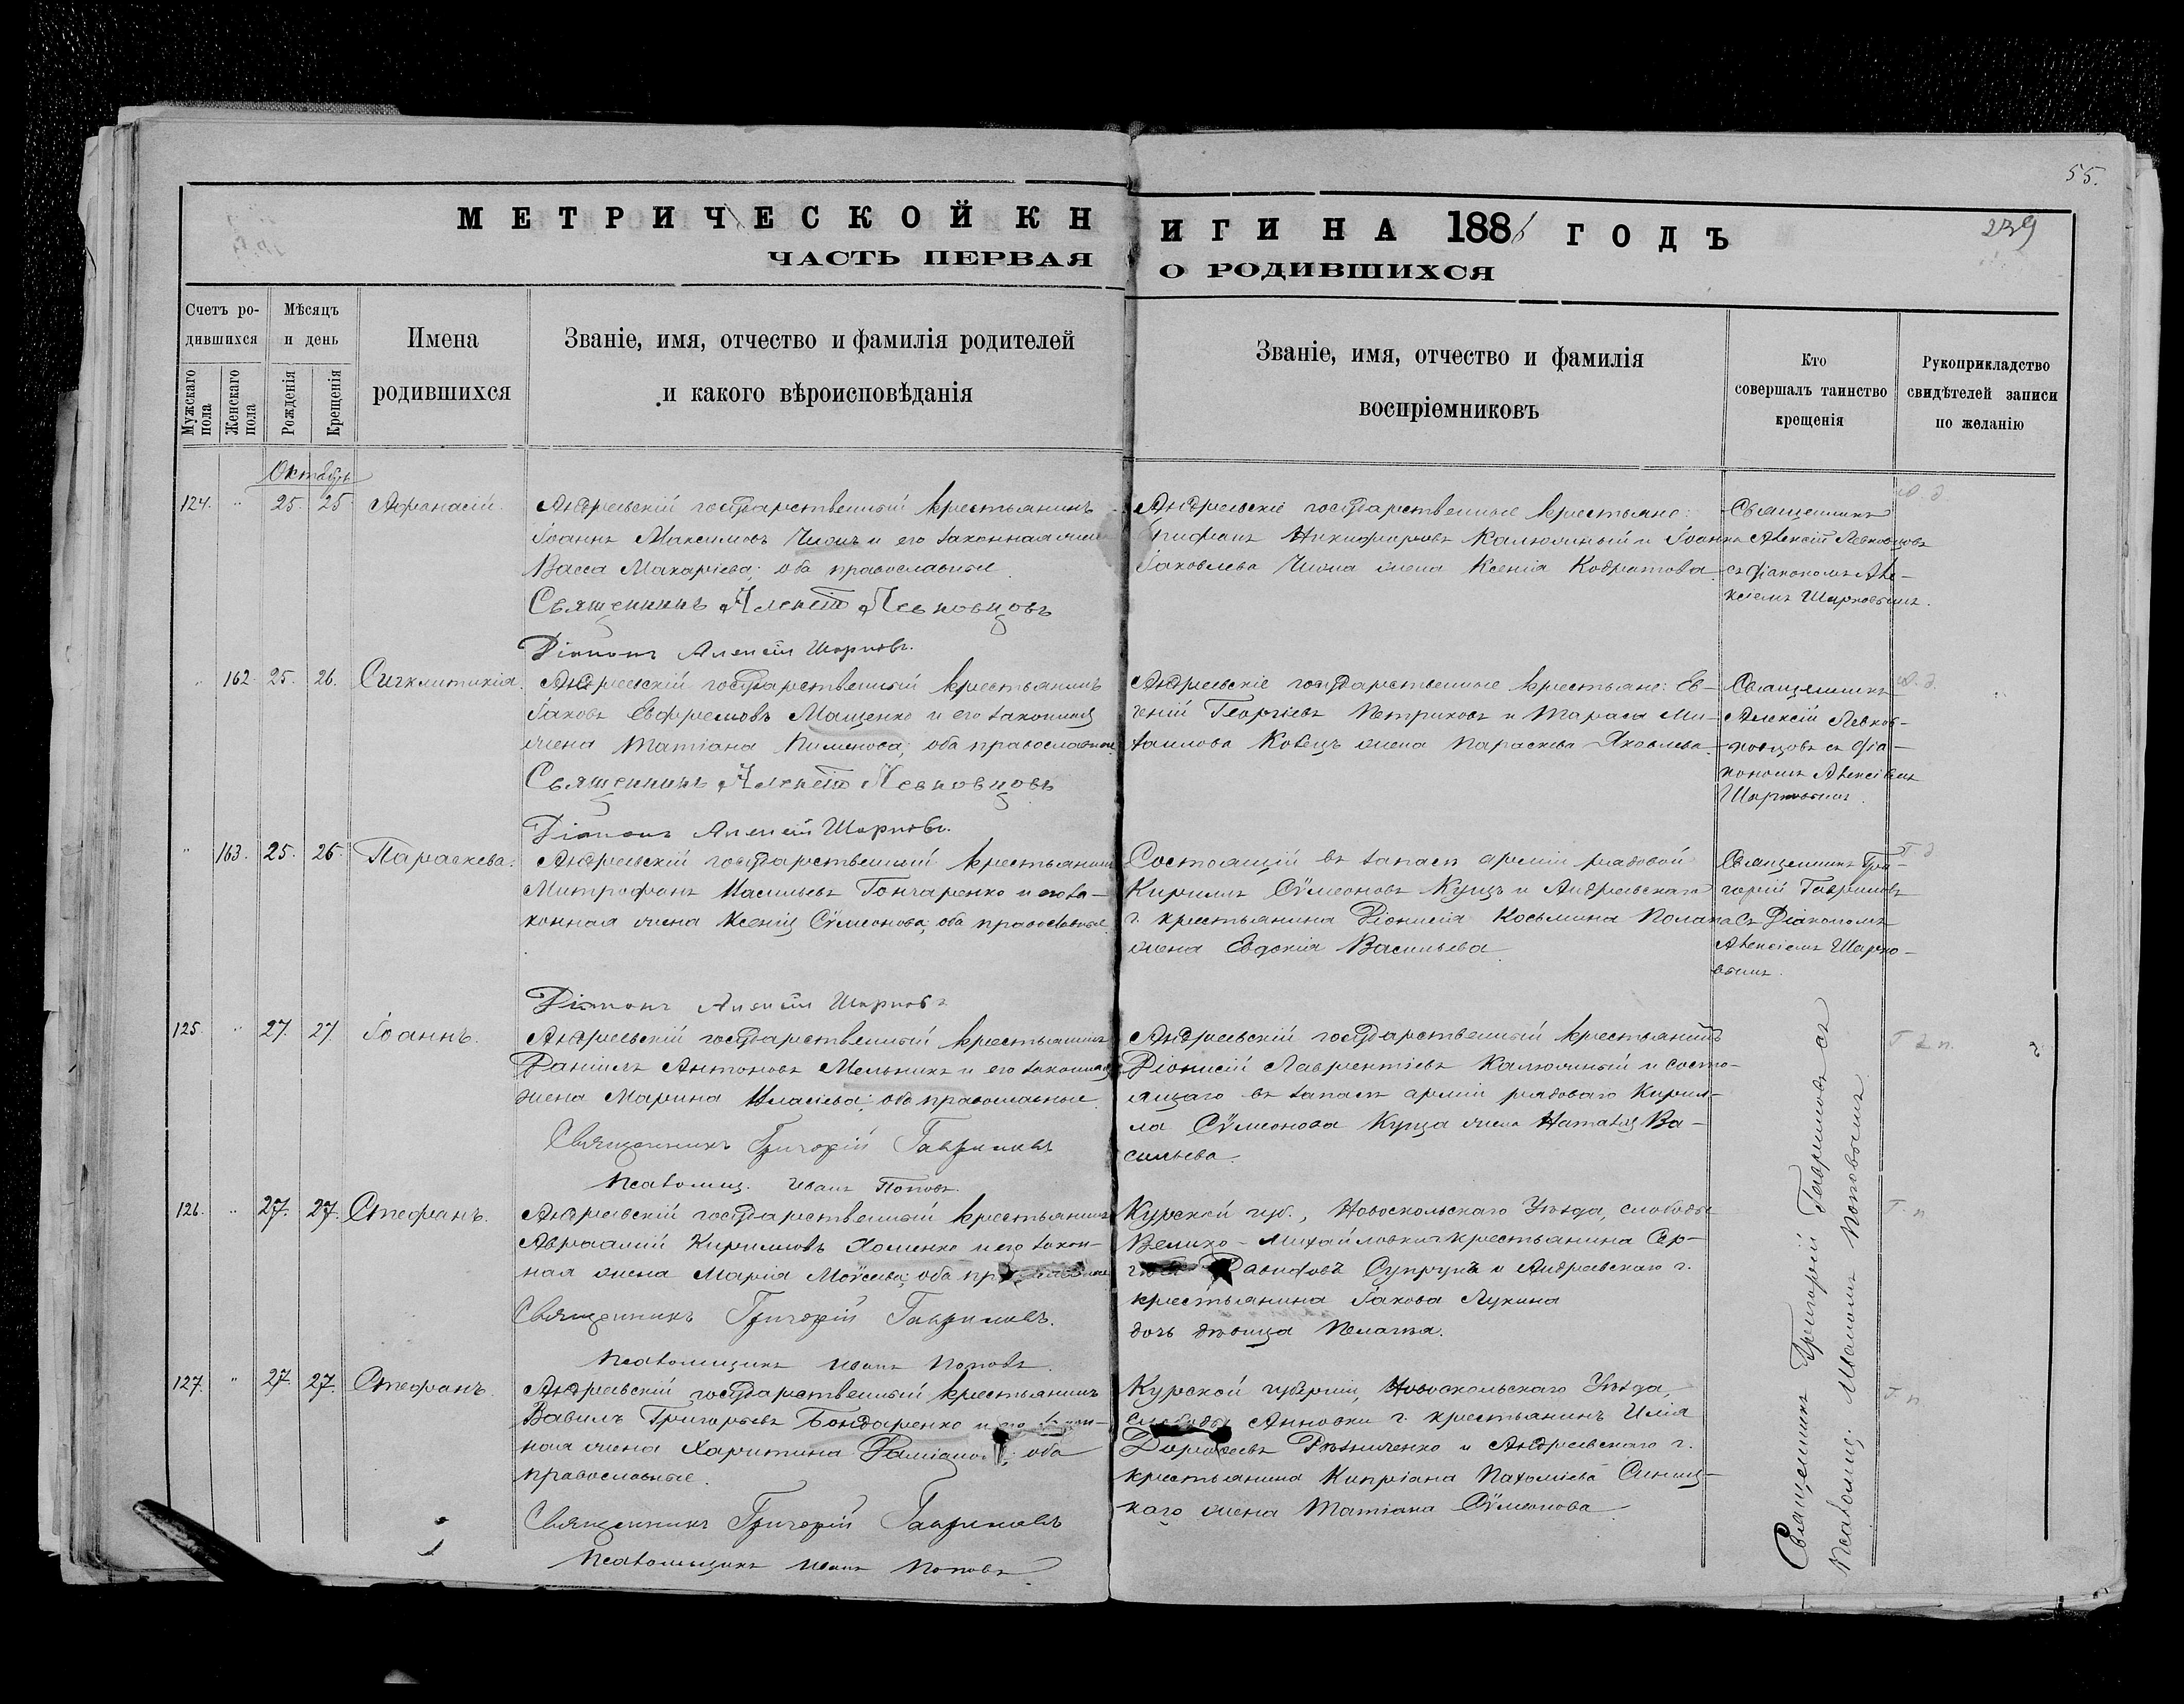 55.
239
МЕТРИЧЕСКОЙ КНИГИ НА 1886 ГОДЪ
ЧАСТЬ ПЕРВАЯ О РОДИВШИХСЯ
Счетъ ро-
дившихся
Мужскаго пола
Женскаго пола
Мѣсяцъ
и день
Рожденія
Крещенія
Имена
родившихся
Званіе, имя, отчество и фамилія родителей
и какого вѣроисповѣданія
Званіе, имя, отчество и фамилія
воспріемниковъ
Кто
совершалъ таинство
крещенія
Рукоприкладство
свидѣтелей записи
по желанію
Октябрь
124. " 25. 25 Аѳанасій.
Андреевскій государственный крестьянинъ
Іоаннъ Максимовъ и его законная жена
Васса Макаріева; оба православные
Священникъ Алексій Левковцовъ
Діаконъ Алексій Шарковъ.
Андреевскіе государственные крестьяне:
Никифоровъ Калюжный и Іоанна
Іаковлева жена Ксенія Кодратова.
Священникъ
Алексій Левковцовъ
съ діакономъ Але-
ксіемъ Шарковымъ.
" 162. 25. 26. Сигклитикія.
Андреевскій государственный крестьянинъ
Іаковъ Евфремовъ Мащенко и его законная
жена Татіана Пименова; оба православные
Священникъ Алексій Левковцовъ
Діаконъ Алексій Шарковъ.
Андреевскіе государственные крестьяне: Ев-
геній Георгіевъ Петриковъ и Тараса Ми-
хаилова жена Параскева Яковлева.
Священникъ
Алексій Левков-
цовъ съ діа-
кономъ Алексіемъ
Шарковымъ.
" 163. 25. 26. Параскева.
Андреевскій государственный крестьянинъ
Митрофанъ Васильевъ Гончаренко и его за-
конная жена Ксенія Сѵмеонова; оба православные
Діаконъ Алексій Шарковъ
Состоящій въ запасѣ арміи рядовой
Кириллъ Сѵмеоновъ Купцъ и Андреевскаго
г. крестьянина Діонисія Косьмина
жена Евдокія Васильева.
Священникъ Гри-
горій Гавриловъ
съ Діакономъ
Алексіемъ Шарко-
вымъ.
125. " 27. 27. Іоаннъ.
Андреевскій государственный крестьянинъ
Даніилъ Антоновъ Мельникъ и его законная
жена Марина Власіева; оба православные
Священникъ Григорій Гавриловъ
Псаломщ. Иванъ Поповъ.
Андреевскій государственный крестьянинъ
Діонисій Лаврентіевъ Калюжный и состо-
ящаго въ запасѣ арміи рядоваго Кирил-
ла Сѵмеонова Купца жена Наталія Ва-
сильева.
126. " 27. 27. Стефанъ.
Андреевскій государственный крестьянинъ
Авраамій Кирилловъ Хоменко и его закон-
ная жена Марія Моѵсеева; оба православные
Священникъ Григорій Гавриловъ.
Псаломщикъ Иванъ Поповъ.
Курской губ., Новоскольскаго Уѣзда, слободы
Велико-Михайловки крестьянина Сер-
Давидовъ Супрунъ и Андреевскаго г.
крестьянина Іакова Лукина
дочь дѣвица Пелагія.
127. " 27. 27. Стефанъ.
Андреевскій государственный крестьянинъ
Вавилъ Григорьевъ Бондаренко и его закон-
ная жена Харитина оба
православные.
Священникъ Григорій Гавриловъ
Псаломщикъ Иванъ Поповъ
Курской губерніи, Новоскольскаго Уѣзда,
слободы Анновки г. крестьянинъ Илія
Дороѳеевъ и Андреевскаго г.
крестьянина Кипріана Пахоміева Синиц-
каго жена Татіана Сѵмеонова.
Священникъ Григорій Гавриловъ съ
псаломщ. Иваномъ Поповымъ